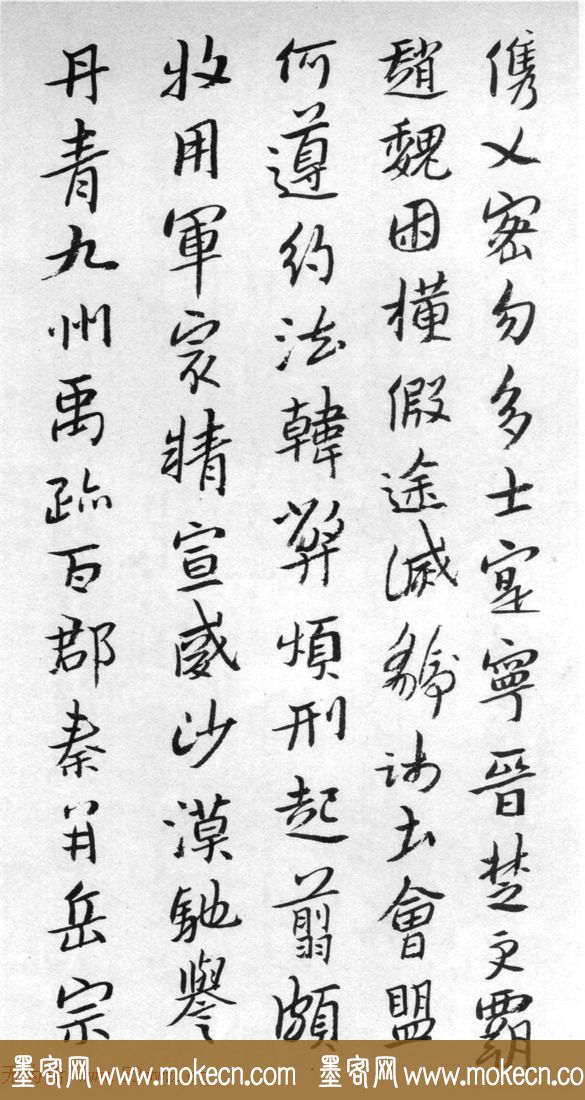 儁乂密勿多士寔寧晉楚更霸
趙魏困橫假途滅虢踐土會盟
何遵約法韓弊煩刑起翦頗
牧用軍最精宣威沙漠馳譽
丹青九州禹跡百郡秦并岳宗
墨客网 www.mokecn.com 墨客网 www.mokecn.com